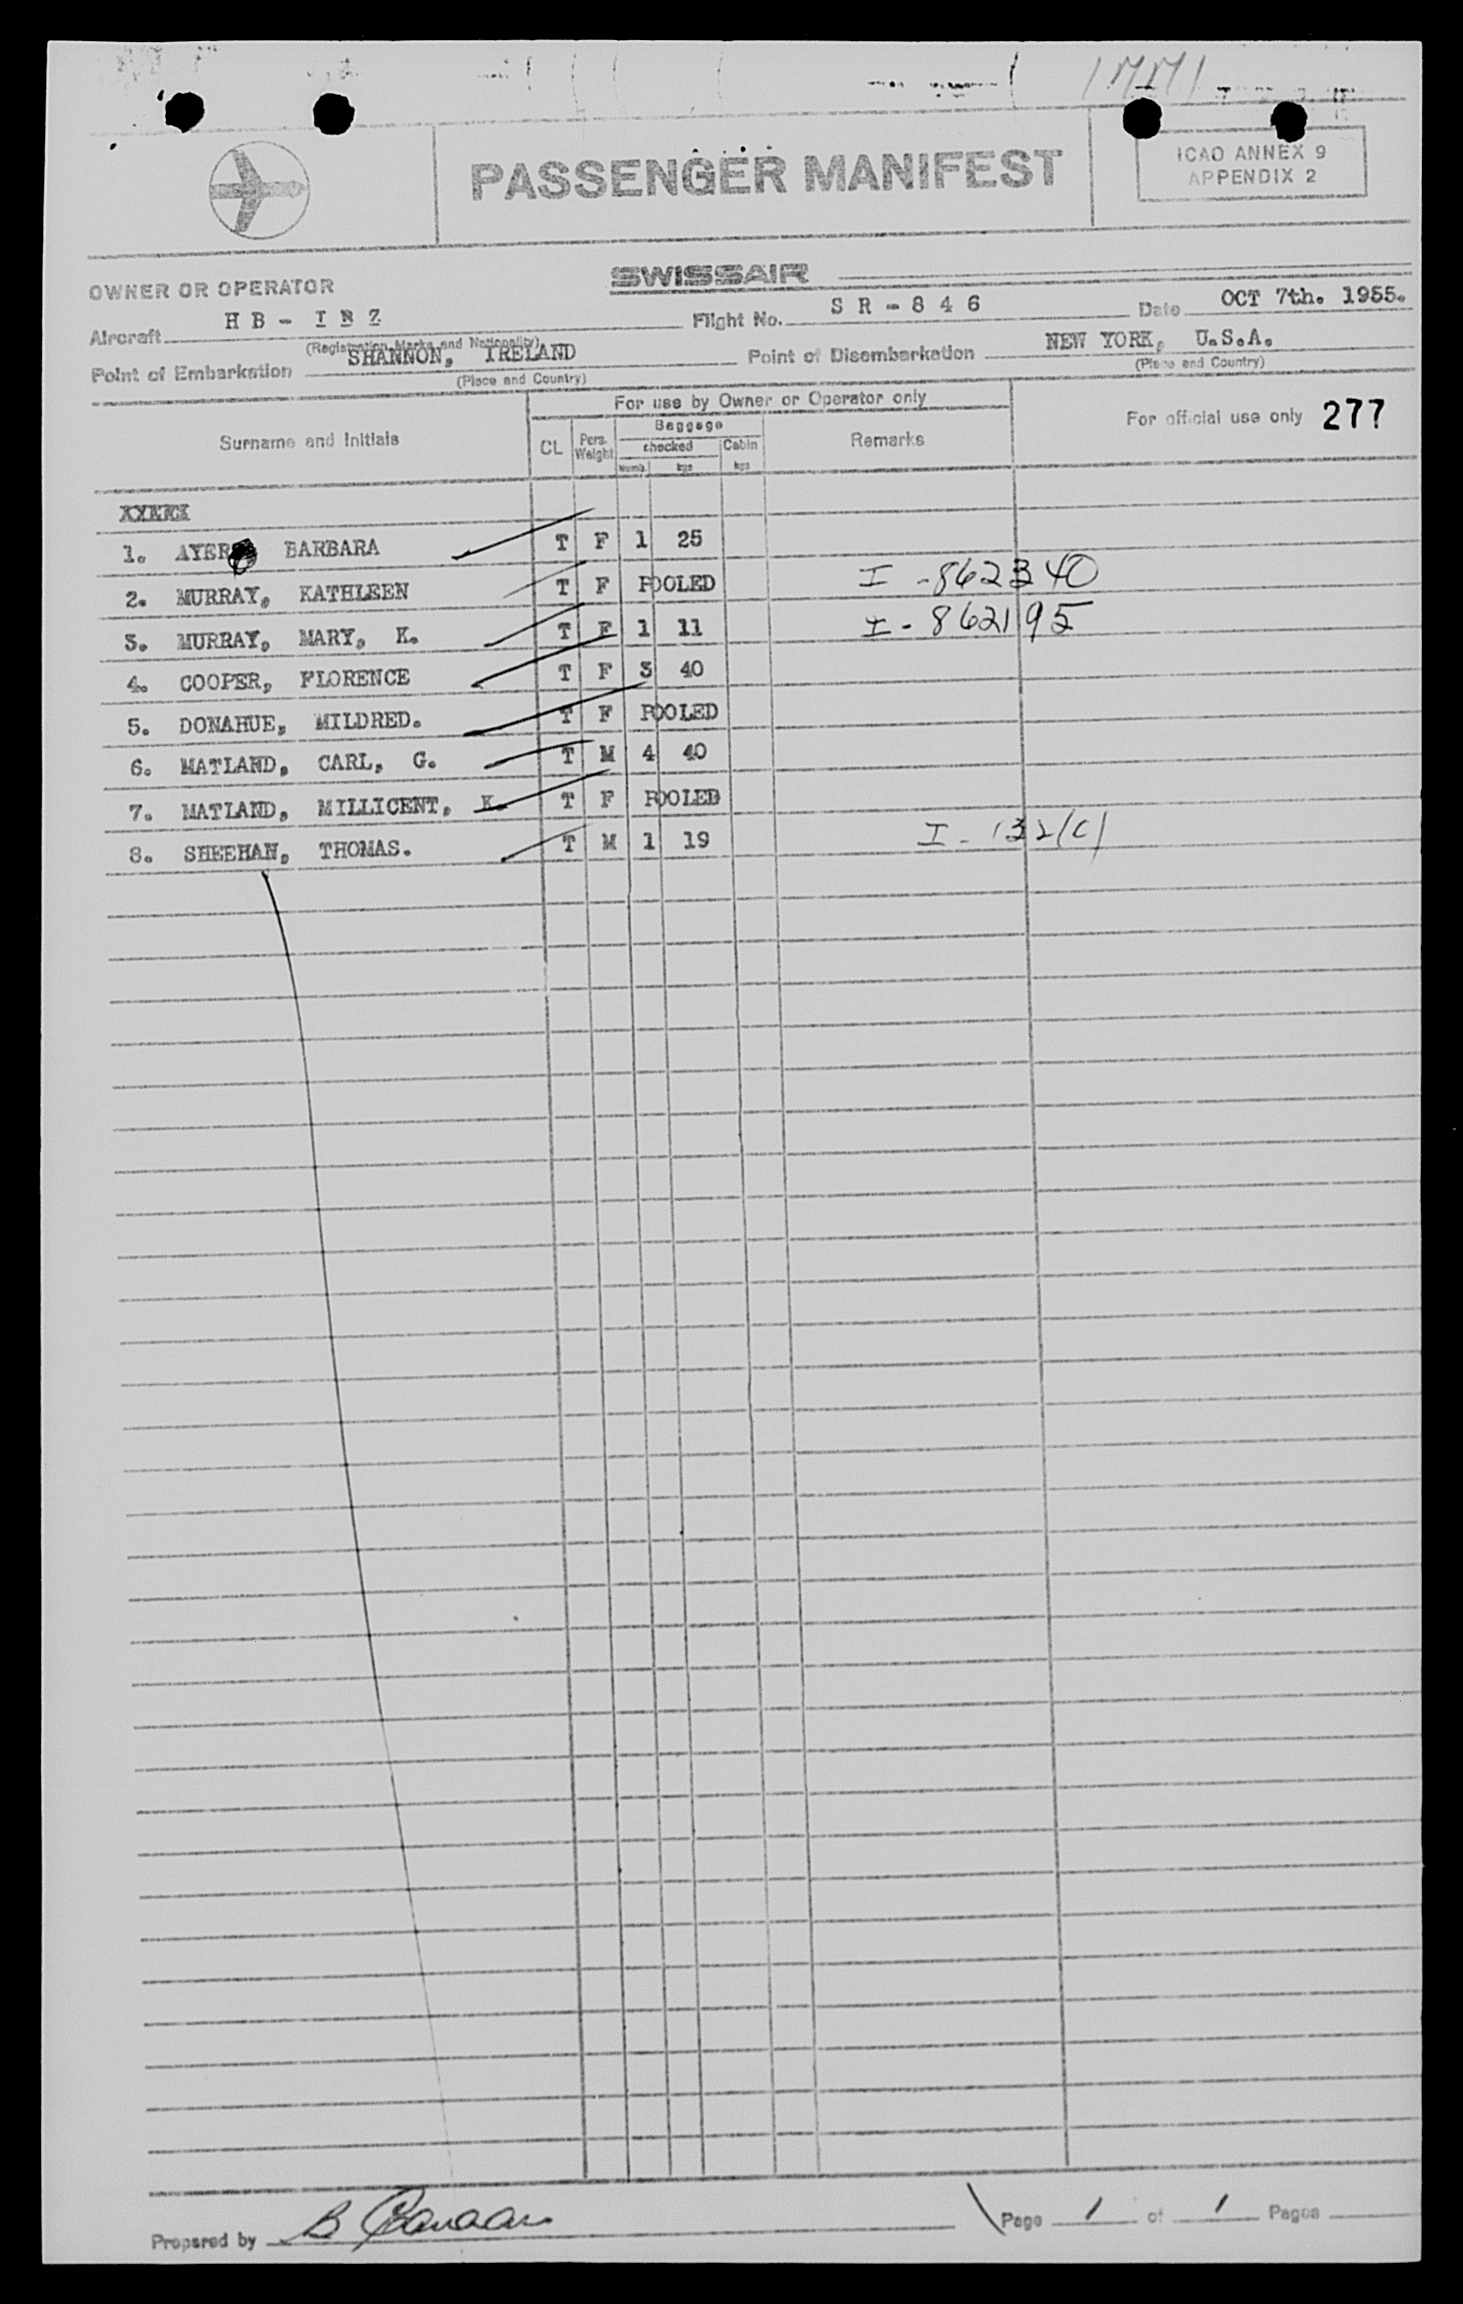 PASSENGER MANIFEST
ICAO ANNEX 9
APPENDIX 2
OWNER OR OPERATOR SWISSAIR
Aircraft HB - IBZ Flight No. SR - 846 Date OCT 7th. 1955.
(Registration Marks and Nationality)
Point of Embarkation SHANNON, IRELAND Point of Disembarkation NEW YORK, U.S.A.
(Place and Country) (Place and Country)
For use by Owner or Operator only
For official use only 277
Surname and Initials CL Pers. Weight Baggage checked Numb. kgs Cabin kgs Remarks
1. AYER BARBARA T F 1 25
2. MURRAY, KATHLEEN T F POOLED I - 862340
3. MURRAY, MARY, K. T F 1 11 I - 862195
4. COOPER, FLORENCE T F 3 40
5. DONAHUE, MILDRED. T F POOLED
6. MATLAND, CARL, G. T M 4 40
7. MATLAND, MILLICENT, K. T F POOLED
8. SHEEHAN, THOMAS. T M 1 19 I - 132(C)
Prepared by B Page 1 of 1 Pages